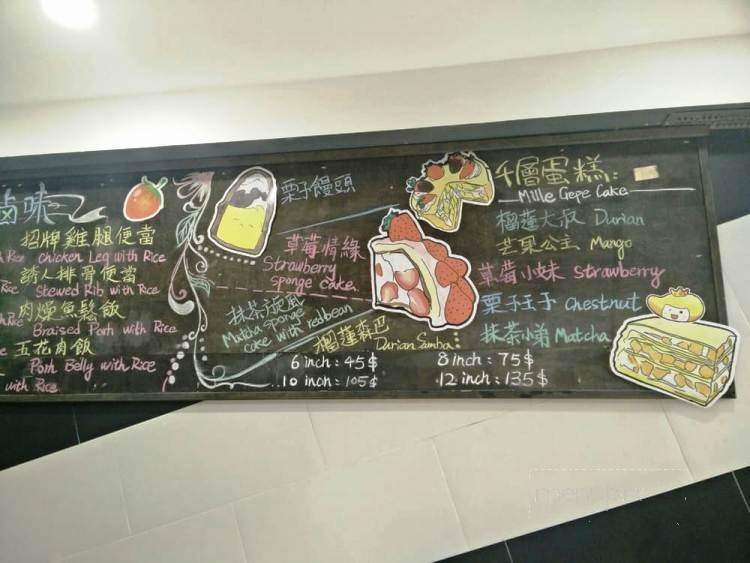 鹵味
招牌雞腿便當
Rice Chicken Leg with Rice
誘人排骨便當
Rice Stewed Rib with Rice
肉燥魚鬆飯
Rice Braised Pork with Rice
五花肉飯
Pork Belly with Rice
with Rice
栗子饅頭
草莓情緣
Strawberry
sponge cake
抹茶旋風
Matcha sponge
cake with redbean
榴蓮森巴 Durian Samba
6 inch : 45$ 8 inch : 75$
10 inch : 105$ 12 inch : 135$
千層蛋糕:
Mille Crepe Cake
榴蓮大叔 Durian
芒果公主 Mango
草莓小妹 Strawberry
栗子王子 Chestnut
抹茶小弟 Matcha